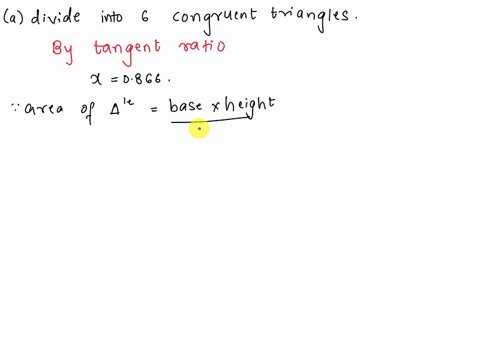 (a) divide into 6 congruent triangles.
By tangent ratio
x = 0.866.
∵ area of Δle = base × height